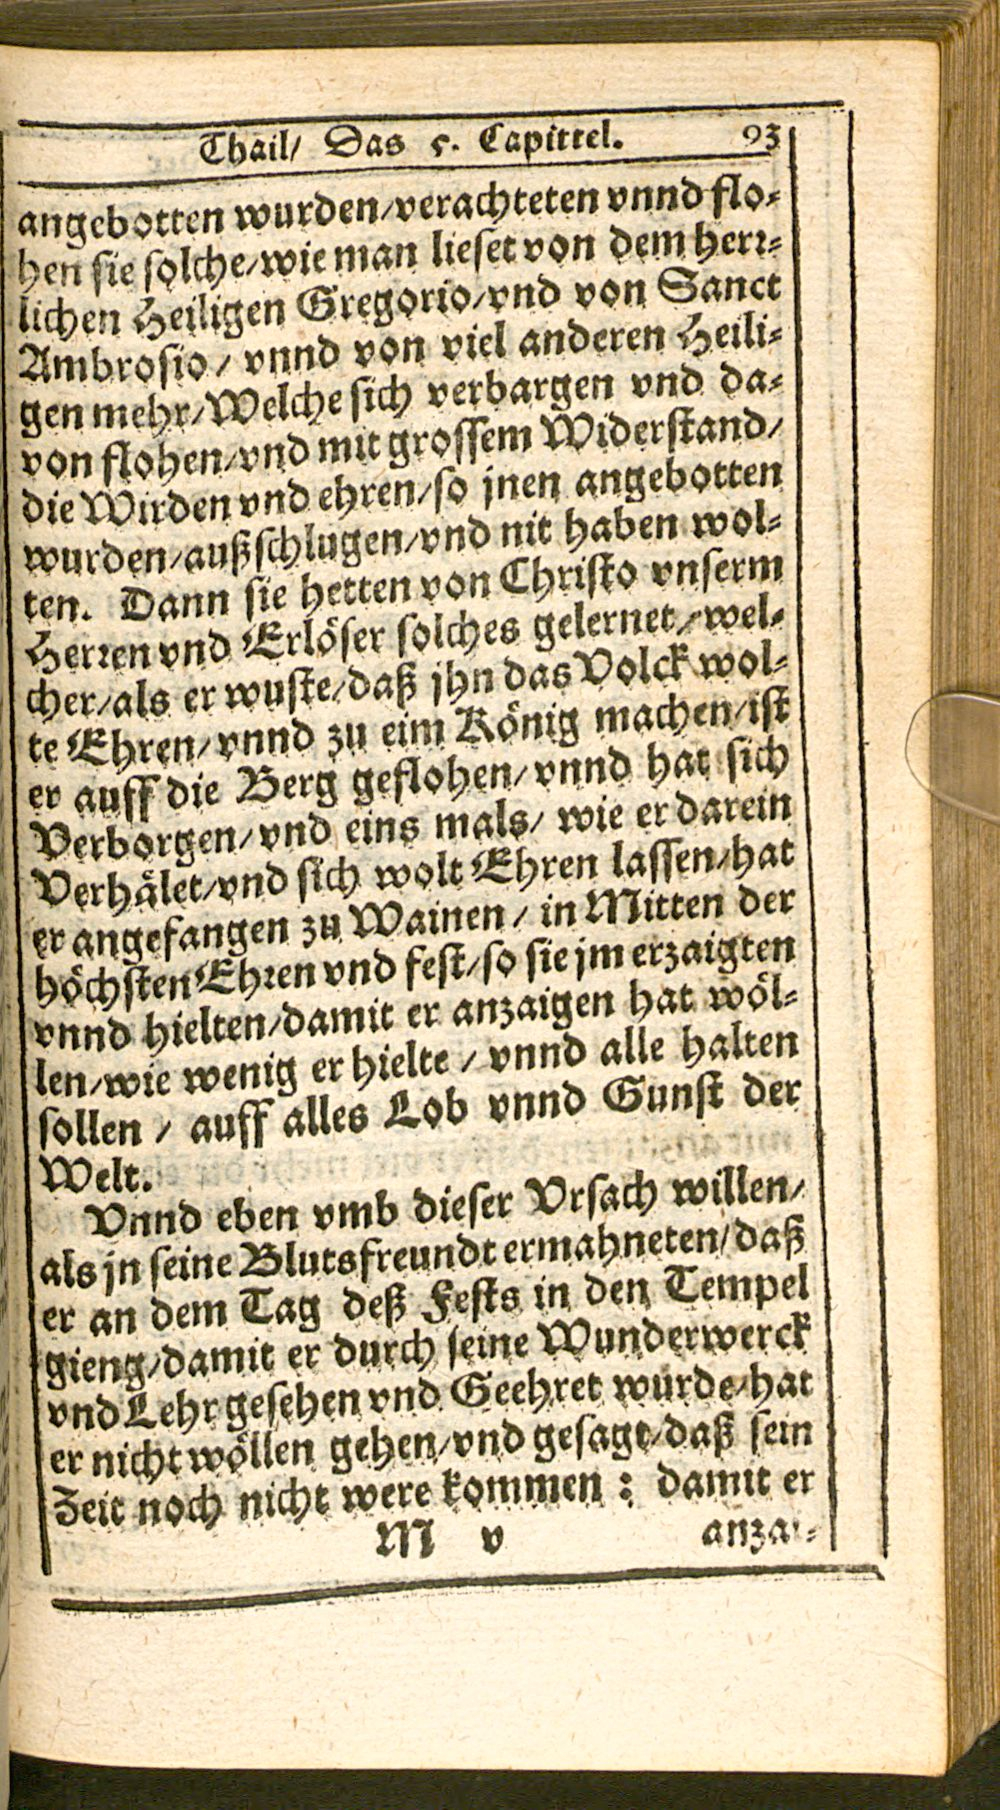 Thail/ Das 5. Capittel. 93
angebotten wurden/verachteten vnnd flo-
hen sie solche/wie man lieset von dem herr-
lichen Heiligen Gregorio/vnd von Sanct
Ambrosio/ vnnd von viel anderen Heili-
gen mehr/Welche sich verbargen vnd da-
von flohen/vnd mit grossem Widerstand/
die Wirden vnd ehren/so jnen angebotten
wurden/außschlugen/vnd nit haben wol-
ten. Dann sie hetten von Christo vnserm
Herren vnd Erlöser solches gelernet/wel-
cher/als er wuste/daß jhn das Volck wol-
te Ehren/vnnd zu eim König machen/ist
er auff die Berg geflohen/vnnd hat sich
Verborgen/vnd eins mals/ wie er darein
Verhälet/vnd sich wolt Ehren lassen/hat
er angefangen zu Wainen/ in Mitten der
höchsten Ehren vnd fest/so sie jm erzaigten
vnnd hielten/damit er anzaigen hat wöl-
len/wie wenig er hielte/ vnnd alle halten
sollen/ auff alles Lob vnnd Gunst der
Welt.
Vnnd eben vmb dieser Vrsach willen/
als jn seine Blutsfreundt ermahneten/daß
er an dem Tag deß Fests in den Tempel
gieng/damit er durch seine Wunderwerck
vnd Lehr gesehen vnd Geehret wurde/hat
er nicht wöllen gehen/vnd gesagt/daß sein
Zeit noch nicht were kommen: damit er
M v anzai-